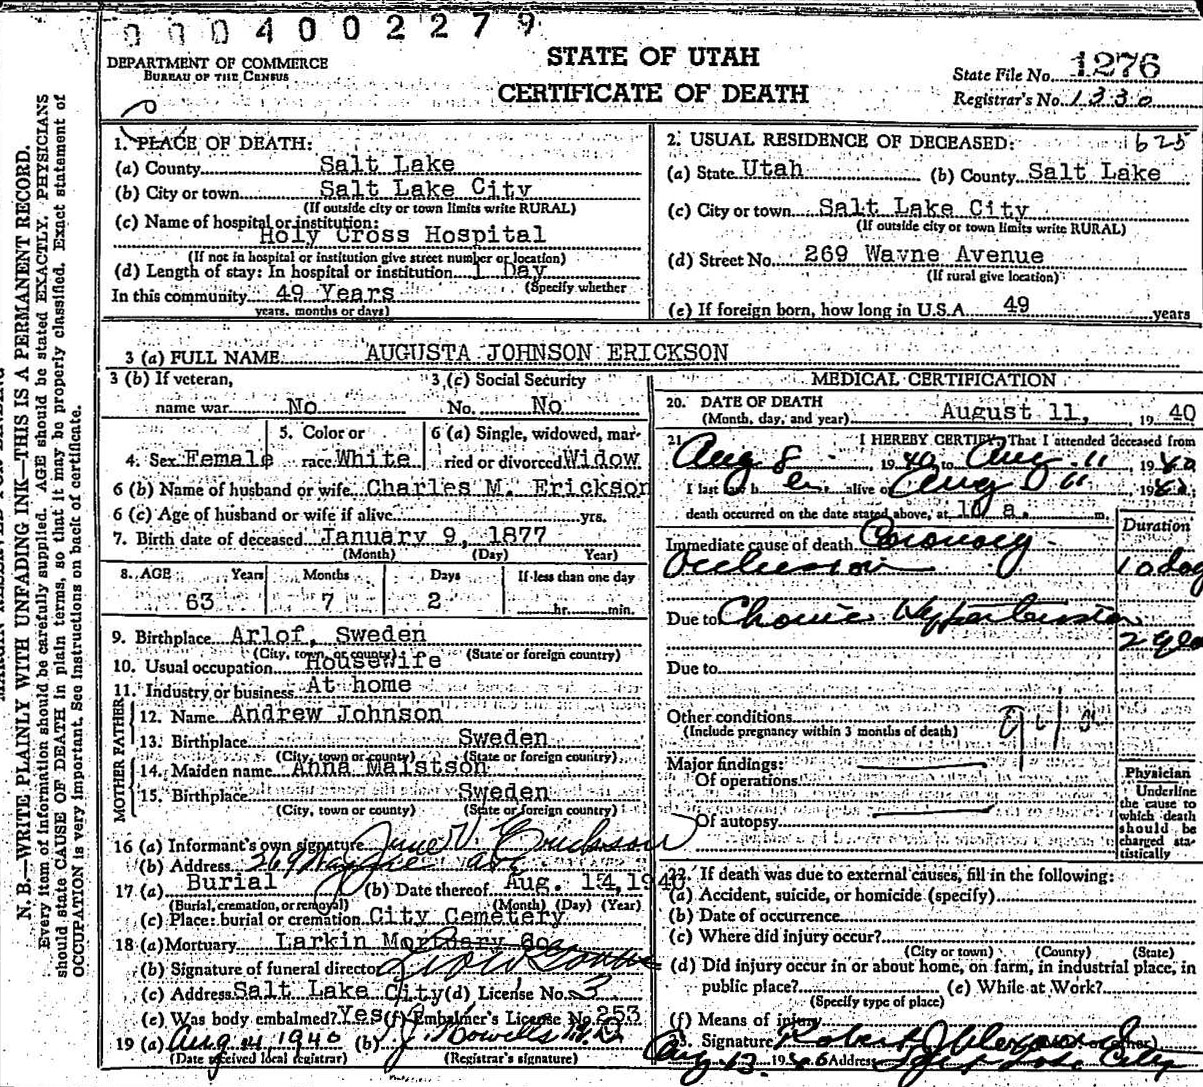 0004002279
DEPARTMENT OF COMMERCE
BUREAU OF THE CENSUS
STATE OF UTAH
CERTIFICATE OF DEATH
State File No. 1276
Registrar's No. 1330
N. B.—WRITE PLAINLY WITH UNFADING INK—THIS IS A PERMANENT RECORD.
Every item of information should be carefully supplied. AGE should be stated EXACTLY. PHYSICIANS
should state CAUSE OF DEATH in plain terms, so that it may be properly classified. Exact statement of
OCCUPATION is very important. See instructions on back of certificate.
1. PLACE OF DEATH:
(a) County Salt Lake
(b) City or town Salt Lake City
(If outside city or town limits write RURAL)
(c) Name of hospital or institution:
Holy Cross Hospital
(If not in hospital or institution give street number or location)
(d) Length of stay: In hospital or institution 1 Day
(Specify whether
In this community 49 Years
years, months or days)
2. USUAL RESIDENCE OF DECEASED: 625
(a) State Utah (b) County Salt Lake
(c) City or town Salt Lake City
(If outside city or town limits write RURAL)
(d) Street No. 269 Wayne Avenue
(If rural give location)
(e) If foreign born, how long in U.S.A. 49 years
3 (a) FULL NAME AUGUSTA JOHNSON ERICKSON
3 (b) If veteran,
name war No
3 (c) Social Security
No. No
4. Sex Female
5. Color or
race White
6 (a) Single, widowed, mar-
ried or divorced Widow
6 (b) Name of husband or wife Charles M. Erickson
6 (c) Age of husband or wife if alive yrs.
7. Birth date of deceased January 9, 1877
(Month) (Day) Year)
8. AGE Years Months Days If less than one day
63 7 2 hr. min.
9. Birthplace Arlof, Sweden
(City, town, or county) (State or foreign country)
10. Usual occupation Housewife
11. Industry or business At home
FATHER
12. Name Andrew Johnson
13. Birthplace Sweden
(City, town or county) (State or foreign country)
MOTHER
14. Maiden name Anna Malstson
15. Birthplace Sweden
(City, town or county) (State or foreign country)
16 (a) Informant's own signature June V. Erickson
(b) Address 269 Wayne ave
17 (a) Burial (b) Date thereof Aug. 14, 1940
(Burial, cremation, or removal) (Month) (Day) (Year)
(c) Place: burial or cremation City Cemetery
18 (a) Mortuary Larkin Mortuary Co.
(b) Signature of funeral director
(c) Address Salt Lake City (d) License No. 3
(e) Was body embalmed? Yes (f) Embalmer's License No. 253
19 (a) Aug 14 1940 (b) J. Howells M.D.
(Date received local registrar) (Registrar's signature)
MEDICAL CERTIFICATION
20. DATE OF DEATH
(Month, day, and year) August 11, 19 40
21. I HEREBY CERTIFY, That I attended deceased from
Aug 8 19 40 to Aug 11 19 40
I last saw h er alive on Aug 11 19 40
death occurred on the date stated above, at 10 a. m.
Duration
Immediate cause of death Coronary
Occlusion 10 day
Due to Chronic Hypertension
Due to
Other conditions
(Include pregnancy within 3 months of death)
Major findings:
Of operations
Of autopsy
Physician
Underline
the cause to
which death
should be
charged sta-
tistically
22. If death was due to external causes, fill in the following:
(a) Accident, suicide, or homicide (specify)
(b) Date of occurrence
(c) Where did injury occur?
(City or town) (County) (State)
(d) Did injury occur in or about home, on farm, in industrial place, in
public place? (e) While at Work?
(Specify type of place)
(f) Means of injury
23. Signature Robert
Aug 13. 1940 Address Salt Lake City